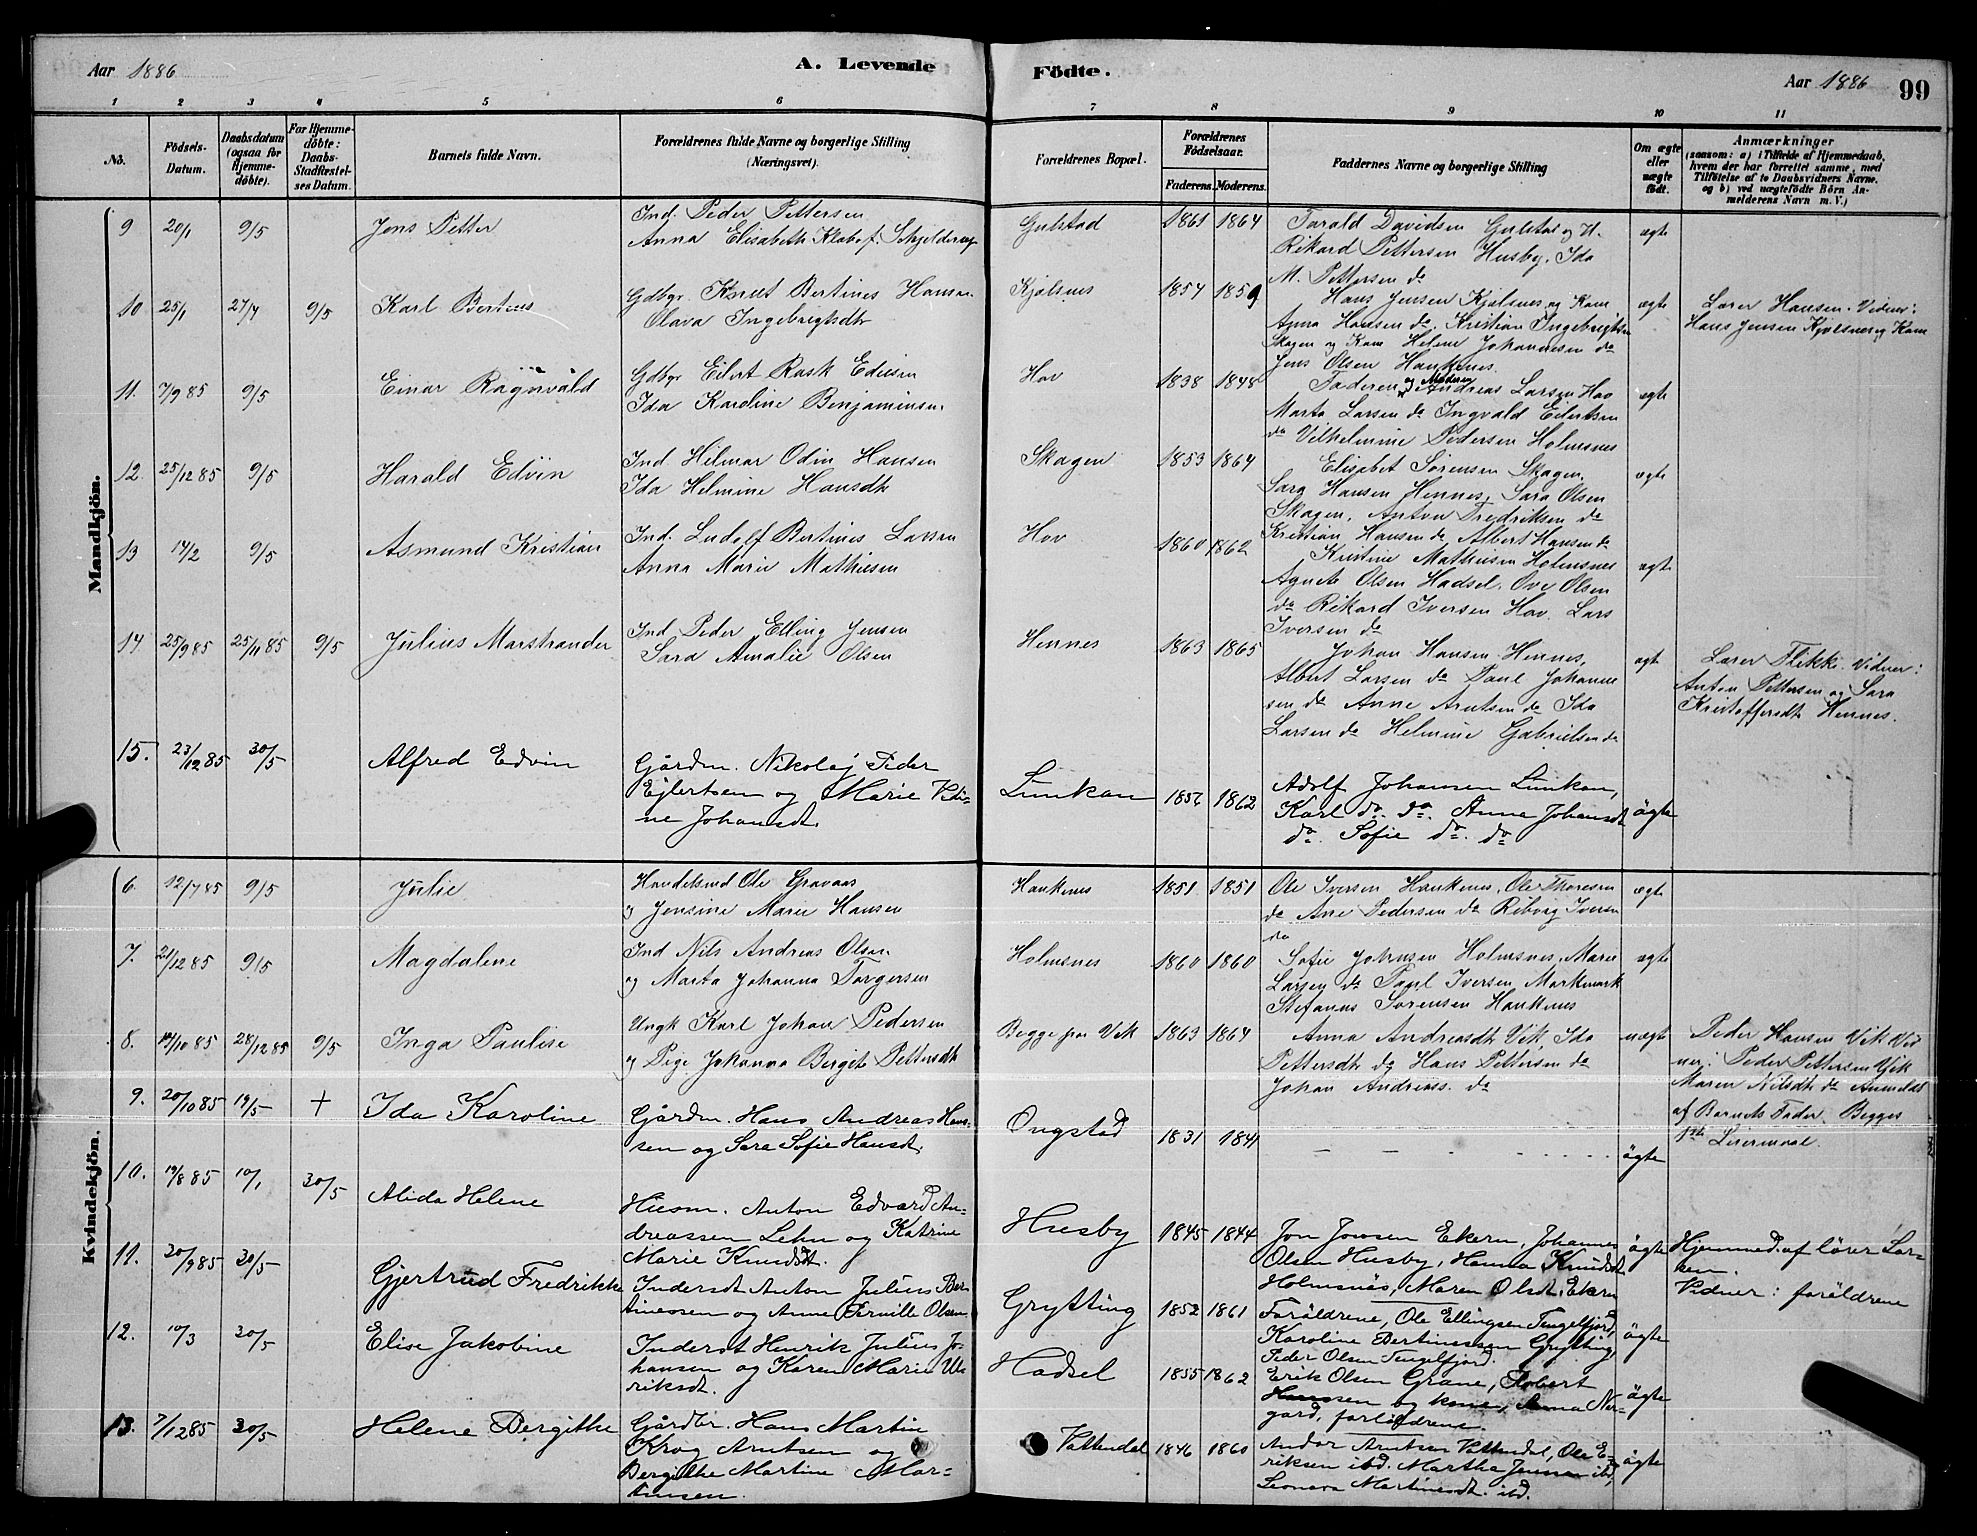 Aar 1886
A. Levende
Födte.
Aar 1886
99
1 2 3 4 5 6 7 8 9 10 11
No.
Födsels-Datum.
Daabsdatum (ogsaa for Hjemme-döbte).
For Hjemme-döbte: Daabs-Stadfæstel-ses Datum.
Barnets fulde Navn.
Forældrenes fulde Navne og borgerlige Stilling (Næringsvei).
Forældrenes Bopæl.
Forældrenes Födselsaar.
Faderens. Moderens.
Faddernes Navne og borgerlige Stilling
Om ægte eller uægte födt.
Anmærkninger
(saasom: a) i Tilfælde af Hjemmedaab, hvem der har forrettet samme, med Tilföielse af to Daabsvidners Navne, og b) ved uægtefödte Börn An-melderens Navn m. V.)
Mandkjön.
9 20/1 9/5 Jens Petter
Ind. Peder Pettersen
Anna Elisabeth Klabof. Schjelderup
Gulstad 1861 1864
Tarald Davidsen Gulstad og H.
Rikard Pettersen Husby. Ida
M. Pettersen do
ægte
10 25/1 27/4 9/5 Karl Bertius
Gdbgr. Knut Bertines Hansen
Olava Ingebrigtsdtr
Kjölsnes 1854 1859
Hans Jensen Kjölsnes og Kone
Anna Hansen do. Kristian Ingebrigtsen
Skagen og Kone Helene Johannesen do
Jens Olsen Haukenes.
ægte
Lærer Hansen. Vidner:
Hans Jensen Kjölsnes og Kone
11. 7/9 85 9/5 Einar Ragnvald
Gdbgr Eilert Rask Ediesen
Ida Karoline Benjaminsen.
Hov 1838 1848
Faderen og Moderen Andreas Larsen Hov
Marta Larsen do Ingvald Eilertsen
do Vilhelmine Pedersen Holmsnes
ægte
12. 25/12 85 9/5 Harald Edvin
Ind. Hilmar Odin Hansen
Ida Helmine Hansdtr
Skagen 1853 1864
Elisabet Sörensen Skagen,
Sara Hansen Hennes, Sara Olsen
Skagen, Anton Fredriksen do
Kristian Hansen do Albert Hansen do
ægte
13 14/2 9/5 Asmund Kristian
Ind. Ludolf Bertines Larsen
Anna Marie Mathiesen
Hov 1860 1862
Kristine Mathiesen Holmsnes
Agnete Olsen Hadsel. Ove Olsen
do Rikard Iversen Hov. Lars
Iversen do
ægte
14. 25/9 85 25/11 85 9/5 Julius Marstrander
Ind Peder Elling Jensen
Sara Amalie Olsen
Hennes 1863 1865
Johan Hansen Hennes,
Albert Larsen do Paul Johanne
sen do Anne Arntsen do Ida
Larsen do Helmine Gabrielsen do
ægte
Lærer Flikke. Vidner:
Anton Pettersen og Sara
Kristoffersdtr Hennes.
15. 23/12 85 30/5 Alfred Edvin
Gårdm. Nikolaj Peder
Ejlertsen og Marie Veti-
ne Johansdt.
Lunkan 1856 1862
Adolf Johansen Lunkan,
Karl do. do. Anna Johansdt
do. Sofie do. do
ägte
Kvindekjön.
6. 12/7 85 9/5 Julie
Handelsmd Ole Gravaas
og Jensine Marie Hansen
Haukenes 1851 1851
Ole Iversen Haukenes, Ole Thoresen
do Ane Pedersen do Ribvig Iversen
do
ægte
7. 21/12 85 9/5 Magdalene
Ind Nils Andreas Olsen
og Marta Johanna Torgersen
Holmsnes 1860 1860
Sofie Johnsen Holmsnes, Marie
Larsen do Paul Iversen Markmark
Stefanus Sörensen Haukenes
ægte
8. 19/10 85 28/12 85 9/5 Inga Pauline
Ungk Karl Johan Pedersen
og Pige Johanna Bergite Pettersdtr
Begge paa Vik 1863 1864
Anna Andreasdtr Vik, Ida
Pettersdtr do Hans Pettersen do
Johan Andreass. do
uægte
Peder Hansen Vik Vid
ner: Peder Pettersen Vik
Maren Nilsdtr do Anmeldt
af Barnets Fader. Begges
1ste Leiermaal.
9. 20/10 85 19/5 + Ida Karoline
Gårdm. Hans Andreas Han-
sen og Sara Sofie Hansdt.
Ongstad 1831 1841
ägte
10. 19/8 85 10/1 30/5 Alida Helene
Husm. Anton Edvard An-
dreassen Lehn og Katrine
Marie Knudsdt.
Husby 1845 1844
Jon Jonsen Ekern, Johannes
Olsen Husby, Hanna Knudsdt
Holmsnäs, Maren Olsdt. Ekern
ägte
Hjemmed. af lärer Lar-
sen.
Vidner: foräldrene
11. 20/9 85 30/5 Gjertrud Fredrikke
Inderst Anton Julius Ber-
tinessen og Anne Pernille Olsen
Grytting 1852 1861
Foräldrene, Ole Ellingsen Tengelfjord,
Karoline Bertinessen Grytting
Peder Olsen Tengelfjord.
ägte
12. 10/3 30/5 Elise Jakobine
Inderst Henrik Julius Jo-
hansen og Karen Marie Ul-
riksdt.
Hadsel 1855 1862
Erik Olsen Grane, Robert
Hanssen og kone, Anna Nor-
gård, foräldrene
ägte
13. 7/12 85 30/5 Helene Bergitte
Gårdbr. Hans Martin
Krog Arntsen og
Bergitte Martine Mar-
tinsen.
Vattendal 1846 1860
Andor Arntsen Vattendal, Ole E-
riksen ibd. Martha Jenssen ibd,
Leonora Martinesdt. ibd.
ägte